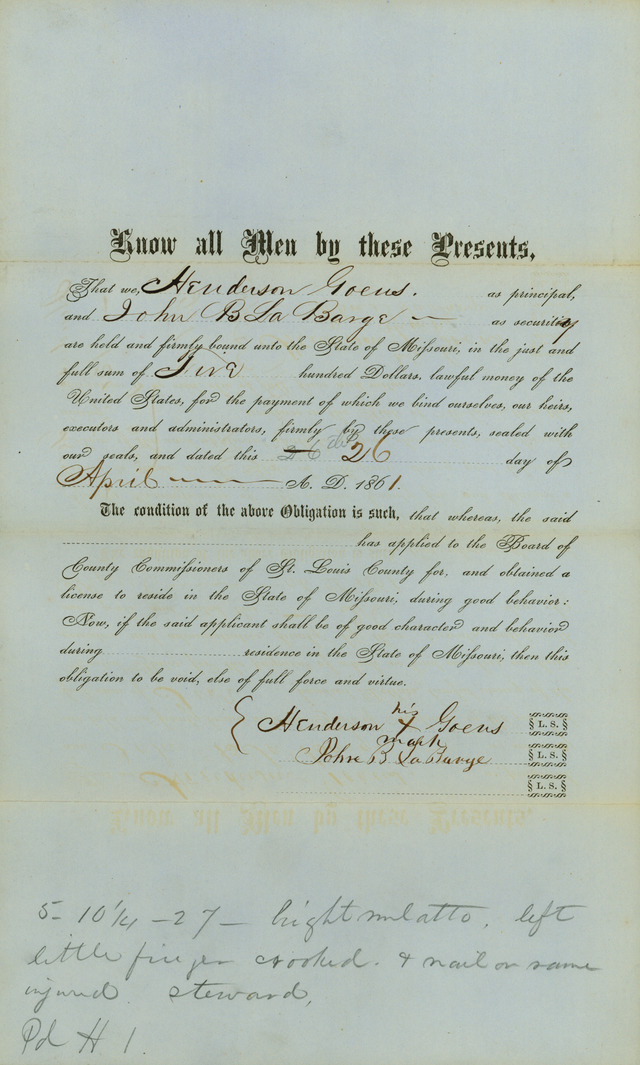 Know all Men by these Presents,
That we, Henderson Goens. as principal,
and John B La Barge as security
are held and firmly bound unto the State of Missouri, in the just and
full sum of Five hundred Dollars, lawful money of the
United States, for the payment of which we bind ourselves, our heirs,
executors and administrators, firmly by these presents, sealed with
our seals, and dated this 26 day of
April A. D. 1861.
The condition of the above Obligation is such, that whereas, the said
has applied to the Board of
County Commissioners of St. Louis County for, and obtained a
license to reside in the State of Missouri, during good behavior:
Now, if the said applicant shall be of good character and behavior
during residence in the State of Missouri, then this
obligation to be void, else of full force and virtue.
his
Henderson X Goens L. S.
mark
John B La Barge L. S.
L. S.
5-10 1/4 - 27 - bright mulatto, left
little finger crooked. & nail on same
injured. steward,
Pd H 1.